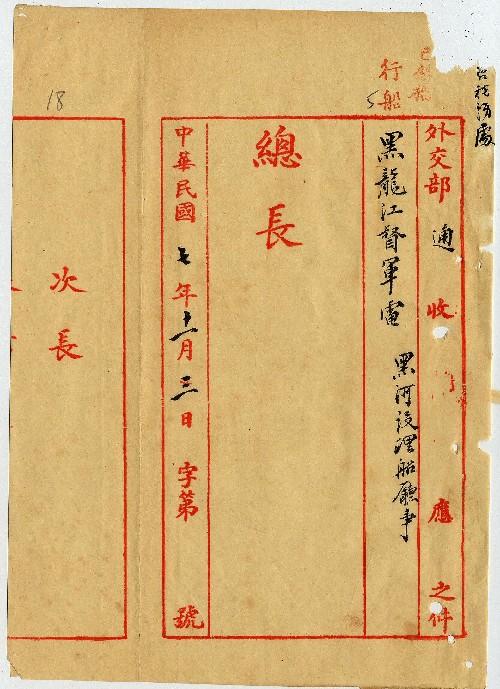 稅務處
外交部 通 收 應 之件
行船 5
黑龍江督軍電 黑河設理船廳事
總長
中華民國 七年 十一月 三日 字第 號
18
次長